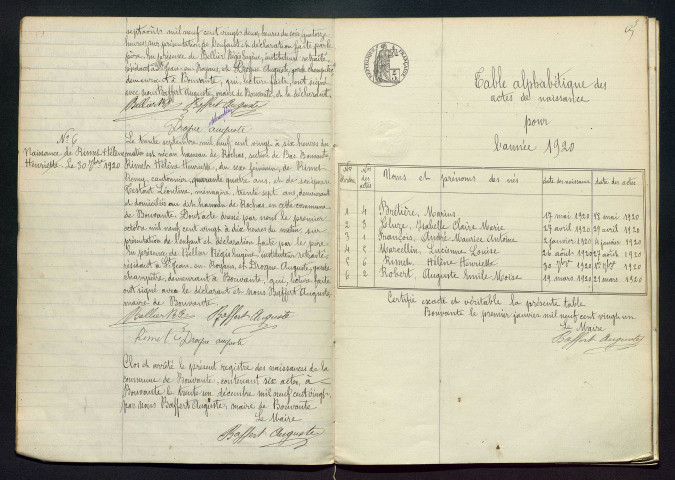 septembre mil neuf cent vingt deux heures du soir quatorze
heures sur présentation de l'enfant et déclaration faite par le
père. En présence de Bellier Régis Eugène, instituteur retraité,
résidant à St Jean en Royans et Drogue Auguste, garde champêtre
demeurant à Bouvante, qui, lecture faite, ont signé
avec nous Baffert Auguste, maire de Bouvante, et le déclarant,
Bellier R E Baffert Auguste
Drogue auguste
N° 6
Naissance de Rimet Hélène
Henriette le 30 7bre 1920
Le trente septembre mil neuf cent vingt à six heures du
matin est née hameau de Rochas, section de Bas Bouvante,
Rimet Hélène Henriette, du sexe féminin, de Rimet
Rémy, cantonnier, quarante quatre ans, et de son épouse
Testout Léontine, ménagère, trente sept ans, demeurant
et domiciliés au dit hameau de Rochas, en cette commune
de Bouvante. Dont acte dressé par nous le premier
octobre mil neuf cent vingt à dix heures du matin, sur
présentation de l'enfant et déclaration faite par le père.
En présence de Bellier Régis Eugène, instituteur retraité
résidant à St Jean en Royans, et Drogue Auguste, garde
champêtre, demeurant à Bouvante, qui, lecture faite
ont signé avec le déclarant et nous Baffert Auguste,
maire de Bouvante.
Bellier R E Baffert Auguste
Rimet Drogue auguste
Clos et arrêté le présent registre des naissances de la
commune de Bouvante, contenant six actes, à
Bouvante le trente un décembre mil neuf cent vingt,
par nous Baffert Auguste, maire de Bouvante
Le Maire
Baffert Auguste
RÉPUBLIQUE FRANÇAISE
Table alphabétique des
actes de naissance
pour
l'année 1920
Nos d'ordre Nos des actes Noms et prénoms des nés date des naissances date des actes
1 4 Marius 17 mai 1920 18 mai 1920
2 3 Isabelle Claire Marie 27 avril 1920 29 avril 1920
3 1 François, André Maurice Antoine 2 janvier 1920 4 janvier 1920
4 5 Marcellin, Lucienne Louise 26 août 1920 27 août 1920
5 6 Rimet, Hélène Henriette 30 7bre 1920 1er 8bre 1920
6 2 Robert, Auguste Emile Moïse 19 mars 1920 21 mars 1920
Certifié exacte et véritable la présente table
Bouvante le premier janvier mil neuf cent vingt un
Le Maire
Baffert Auguste